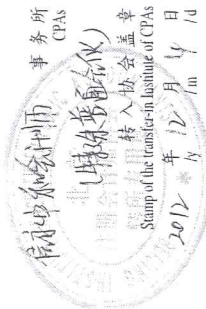 信永中和会计师 事务所
CPAs
(特殊普通合伙)
转入协会盖章
Stamp of the transfer-in Institute of CPAs
2012 年 12 月 日
/y /m /d